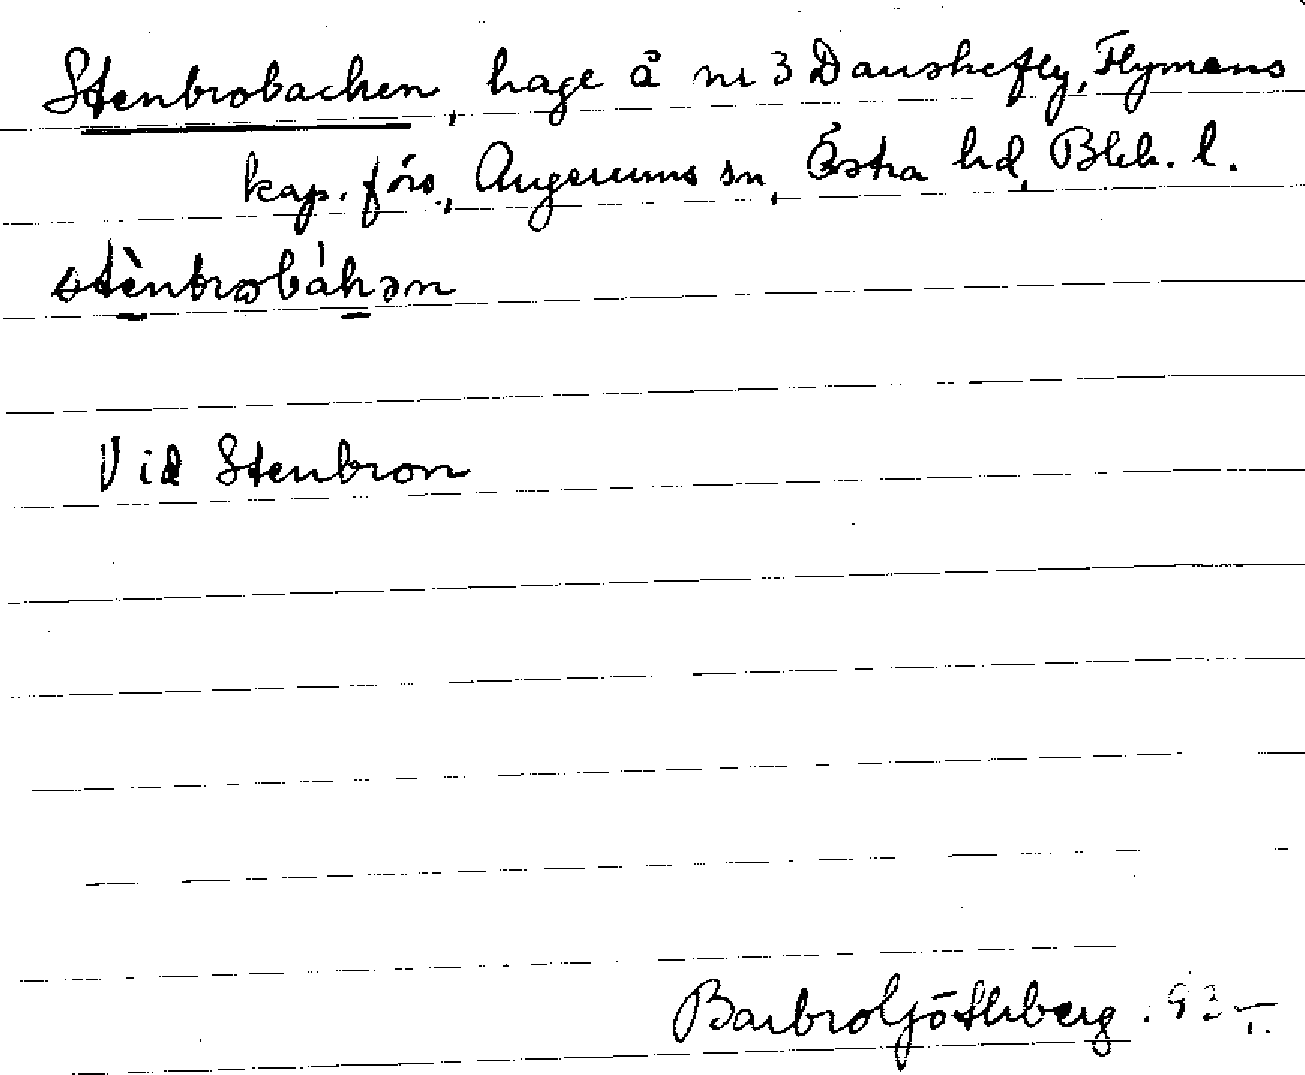 Stenbrobacken, hage å nr 3 Danskefly, Flymens
kap. förs., Augerums sn, Östra hd, Blek. l.
stènbrobákən
Vid Stenbron
Barbro Göthberg.